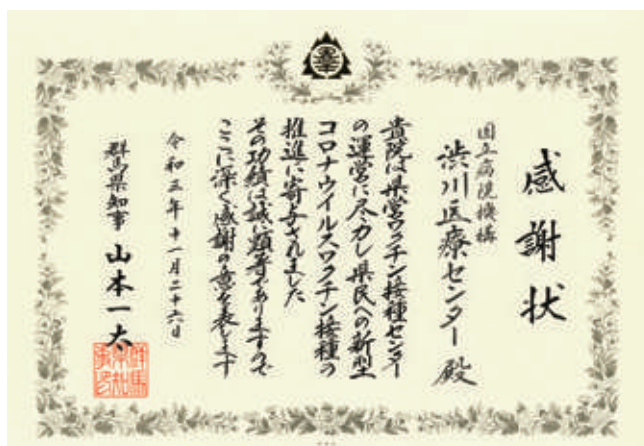 感謝状
国立病院機構
渋川医療センター 殿
貴院は県営ワクチン接種センター
の運営に尽力し県民への新型
コロナウイルスワクチン接種の
推進に寄与されました
その功績は誠に顕著でありますので
ここに深く感謝の意を表します
令和三年十一月二十六日
群馬県知事 山本一太